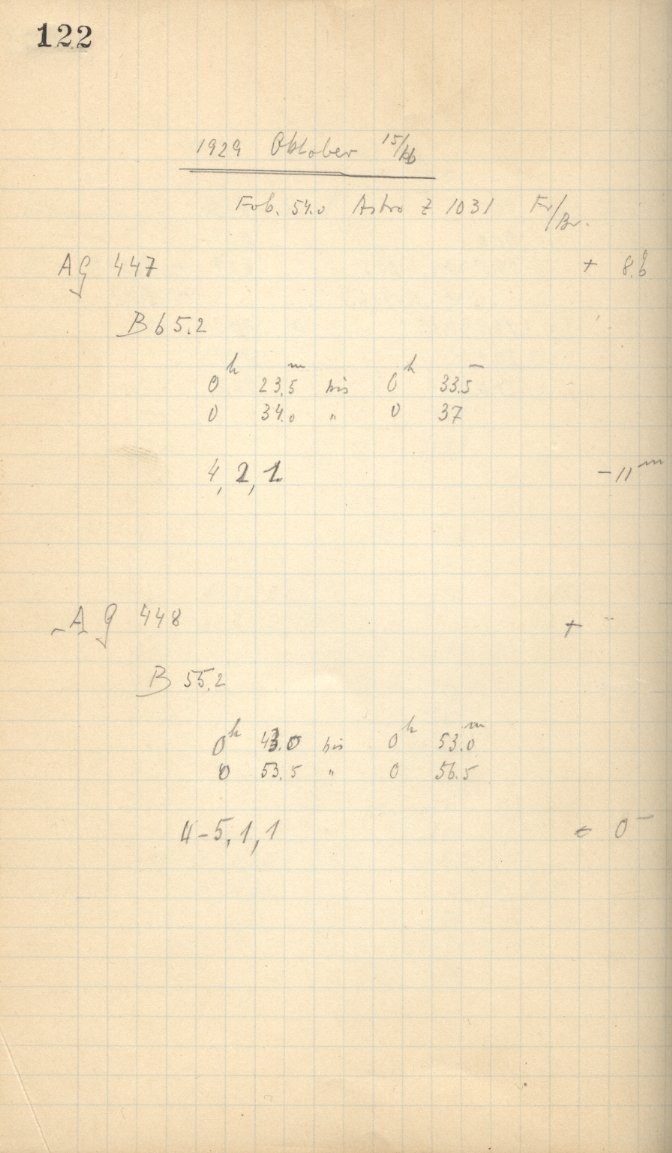 122
1929 Oktober 15/16
Fok. 54.0 Astro Z 1031 Fr/Br.
AG 447 + 8.6
B 65.2
0h 23.5m bis 0h 33.5m
0 34.0 " 0 37
4, 2, 1 -11m
AG 448 +
B 55.2
0h 43.0 bis 0h 53.0m
0 53.5 " 0 56.5
4-5, 1, 1 0m